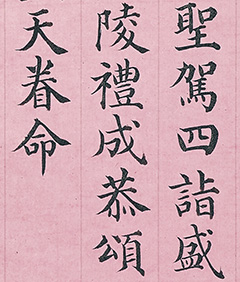 聖駕四詣盛
陵禮成恭頌
天眷命